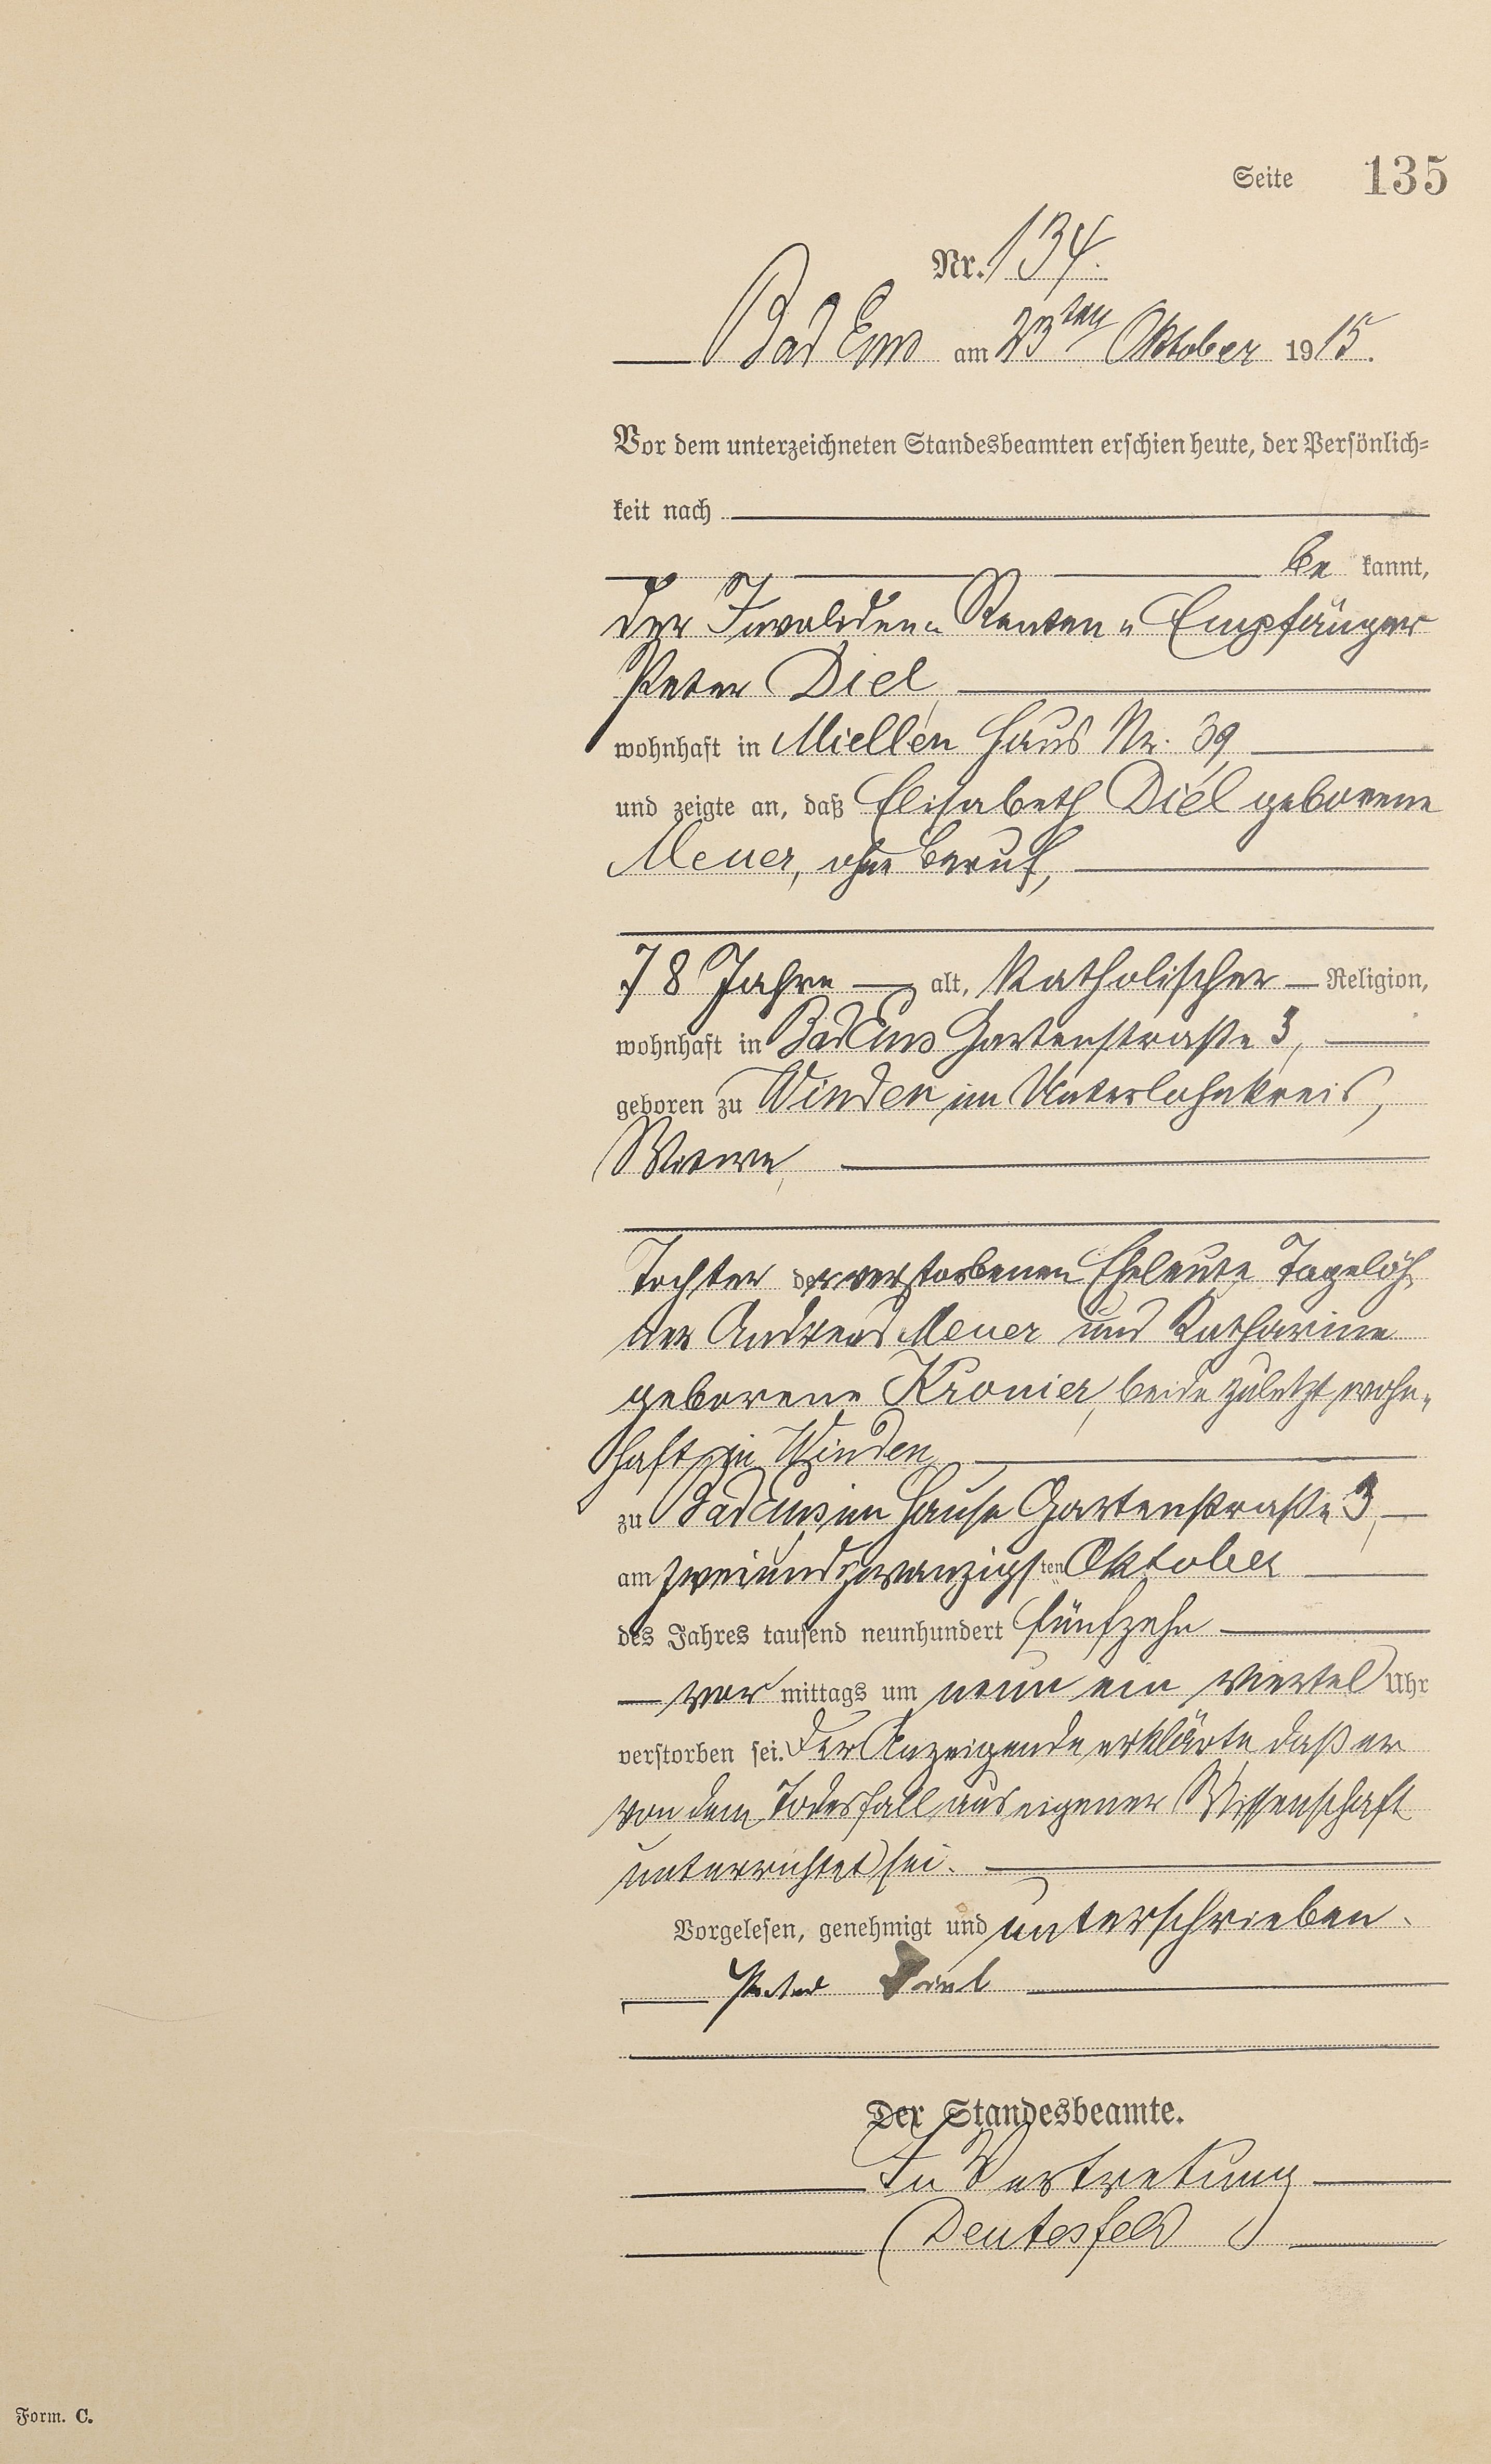 Seite 135
Nr. 134.
Bad Ems am 23ten Oktober 1915.
Vor dem unterzeichneten Standesbeamten erschien heute, der Persönlich-
keit nach
be kannt,
der Invaliden-Renten-Empfänger
Peter Diel,
wohnhaft in Miellen Haus Nr. 39,
und zeigte an, daß Elisabeth Diel geborene
Meuer, ohne Beruf,
78 Jahre alt, katholischer Religion,
wohnhaft in Bad Ems Gartenstraße 3,
geboren zu Winden im Unterlahnkreis,
Witwe,
Tochter der verstorbenen Eheleute Tagelöh,
ner Andreas Meuer und Katharine
geborene Kronier, beide zuletzt wohn-
haft in Winden,
zu Bad Ems, im Hause Gartenstraße 3,
am zweiundzwanzigsten Oktober
des Jahres tausend neunhundert fünfzehn
vor mittags um neun ein viertel Uhr
verstorben sei. Der Anzeigende erklärte daß er
von dem Todesfall aus eigener Wissenschaft
unterrichtet sei.
Vorgelesen, genehmigt und unterschrieben.
Peter Diel
Der Standesbeamte.
In Vertretung
Deutesfeld
Form. C.